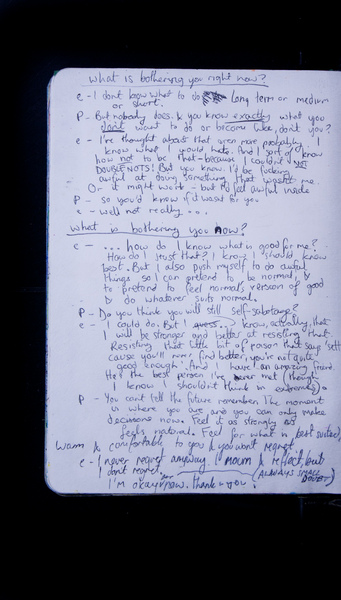 what is bothering you right now?
e - I don't know what to do long term or medium
or short.
P - But nobody does. & you know exactly what you
don't want to do or become like, don't you?
e - I've thought about that even more probably. I
know what I would hate. And I sort of know
how not to be that - because I couldn't NOT
DOUBLE NOTS! But you know. I'd be fucking
awful at doing something that wasn't me.
Or it might work - but I'd feel awful inside
P - so you'd know if it wasn't for you
e - well not really ...
what is bothering you now?
e - ... how do I know what is good for me?
How do I trust that? I know I should know
best. But I also push myself to do awful
things so I can pretend to be normal,
to pretend to feel normal's version of good
do whatever suits normal.
P - Do you think you will still self-sabotage?
e - I could do. But I know, actually, that
I will be stronger and better at resisting that.
Resisting that little bit of reason that says 'settle
cause you'll never find better, you're not quite
good enough'. And I have an amazing friend.
He's the best person I've ever met (though
I know I shouldn't think in extremes)
P - You can't tell the future remember. The moment
is where you are and you can only make
decisions now. Feel it as strongly as
feels natural. Feel for what is best suited,
Warm & comfortable to you & you won't regret.
e - I never regret anyway. I mourn & reflect but
don't regret. (ALWAYS SMALL
DOUBT)
I'm okay now. Thank you.